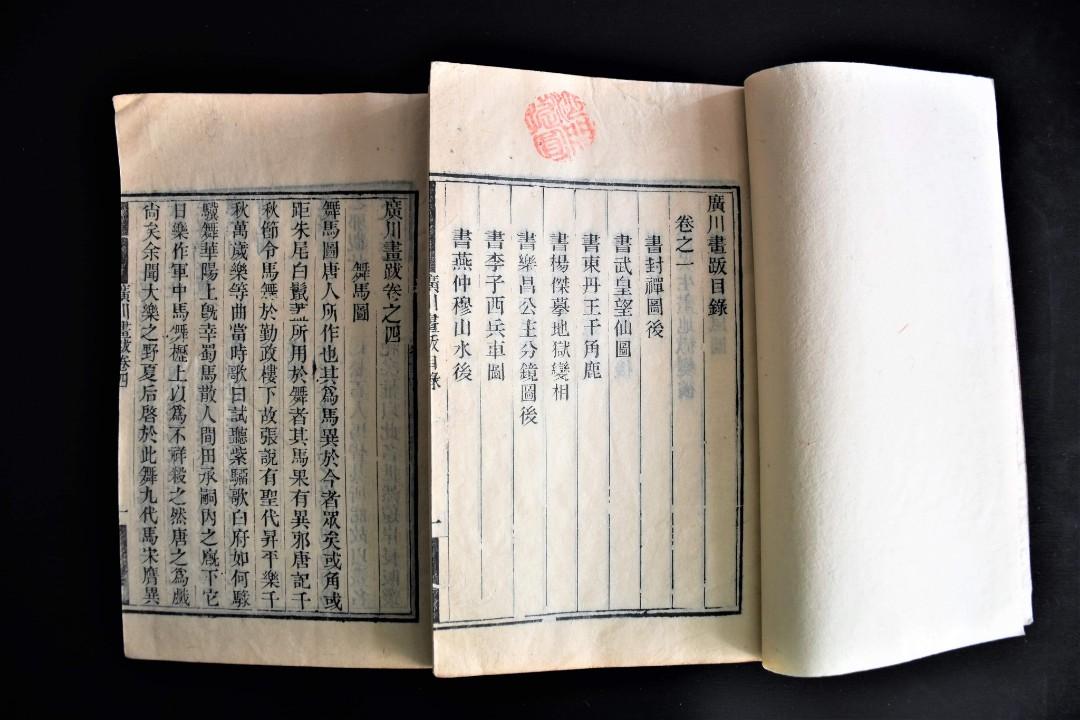 廣川畫跋目錄
卷之一
書封禪圖後
書武皇望仙圖
書東丹王千角鹿
書楊傑摹地獄變相
書樂昌公主分鏡圖後
書李子西兵車圖
書燕仲穆山水後
廣川畫跋目錄
一
廣川畫跋卷之四
舞馬圖
舞馬圖唐人所作也其爲馬異於今者眾矣或角或
距朱尾白鬛葢所用於舞者其馬果有異邪唐記千
秋節令馬舞於勤政樓下故張說有聖代昇平樂千
秋萬歲樂等曲當時歌曰試聽紫騮歌白府如何騄
驥舞華陽上旣幸蜀馬散人間田承嗣內之廐下它
日樂作軍中馬舞櫪上以爲不祥殺之然唐之爲戲
尙矣余聞大樂之野夏后啓於此舞九代馬宋膺異
廣川畫跋卷四
一